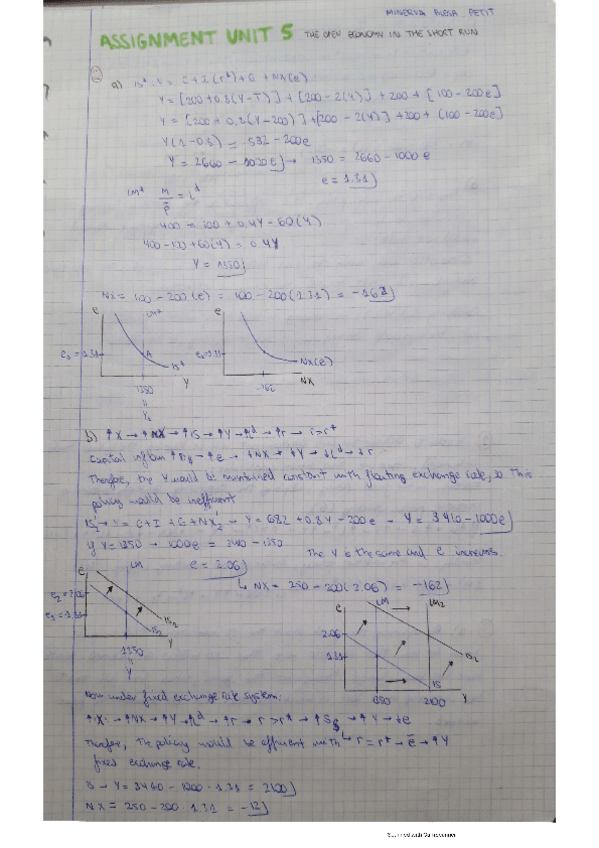 MINERVA PETIT
ASSIGNMENT UNIT 5 THE OPEN ECONOMY IN THE SHORT RUN
a) IS* Y = C + I(r*) + G + NX(e)
Y = [200 + 0.8(Y-T)] + [200 - 2(4)] + 200 + [100 - 200e]
Y = [200 + 0.8(Y-200)] + [200 - 2(4)] + 200 + (100 - 200e)
Y(1-0.8) = 532 - 200e
Y = 2660 - 1000e → 1350 = 2660 - 1000e
e = 1.31
LM* M/P = L^d
400 = 100 + 0.4Y - 60(4)
400 - 100 + 60(4) = 0.4Y
Y = 1350
NX = 100 - 200(e) = 100 - 200(1.31) = -162
e LM* e
e₀ = 1.31 A IS* e₀ = 1.31 NX(e)
1350 Y -162 NX
b) ↑X → ↑NX → ↑IS → ↑Y → ↑L^d → ↑r → r>r*
Capital inflow → ↑e → ↓NX → ↓Y → ↓L^d → ↓r
Therefore, the Y would be maintained constant with floating exchange rate, so This
policy would be inefficient
Y = C + I + G + NX → Y = 682 + 0.8Y - 200e → Y = 3410 - 1000e
if Y = 1350 → 1000e = 3410 - 1350 The Y is the same and e increases.
e = 2.06
↳ NX = 250 - 200(2.06) = -162
e LM
e₂ = 2.06
IS₂
1350 Y
e LM → LM₂
2.06
1.31
IS₂
IS
1350 2100 Y
Now under fixed exchange rate system:
↑X → ↑NX → ↑Y → ↑L^d → ↑r → r>r* → ↑S$ → ↑Y → ↓e
Therefore, The policy would be efficient with ↳ r = r* → ē → ↑Y
fixed exchange rate.
IS → Y = 3410 - 1000 · 1.31 = 2100
NX = 250 - 200 · 1.31 = -12